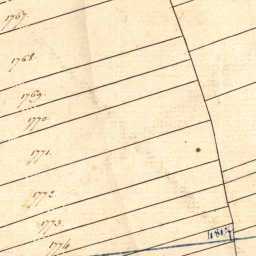 1767.
1768.
1769.
1770.
1771.
1772
1773.
1774
1817